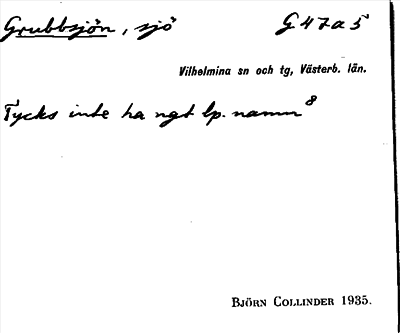 Grubbsjön, sjö G 47a5
Vilhelmina sn och tg, Västerb. län.
Tycks inte ha ngt lp. namn 8
BJÖRN COLLINDER 1935.